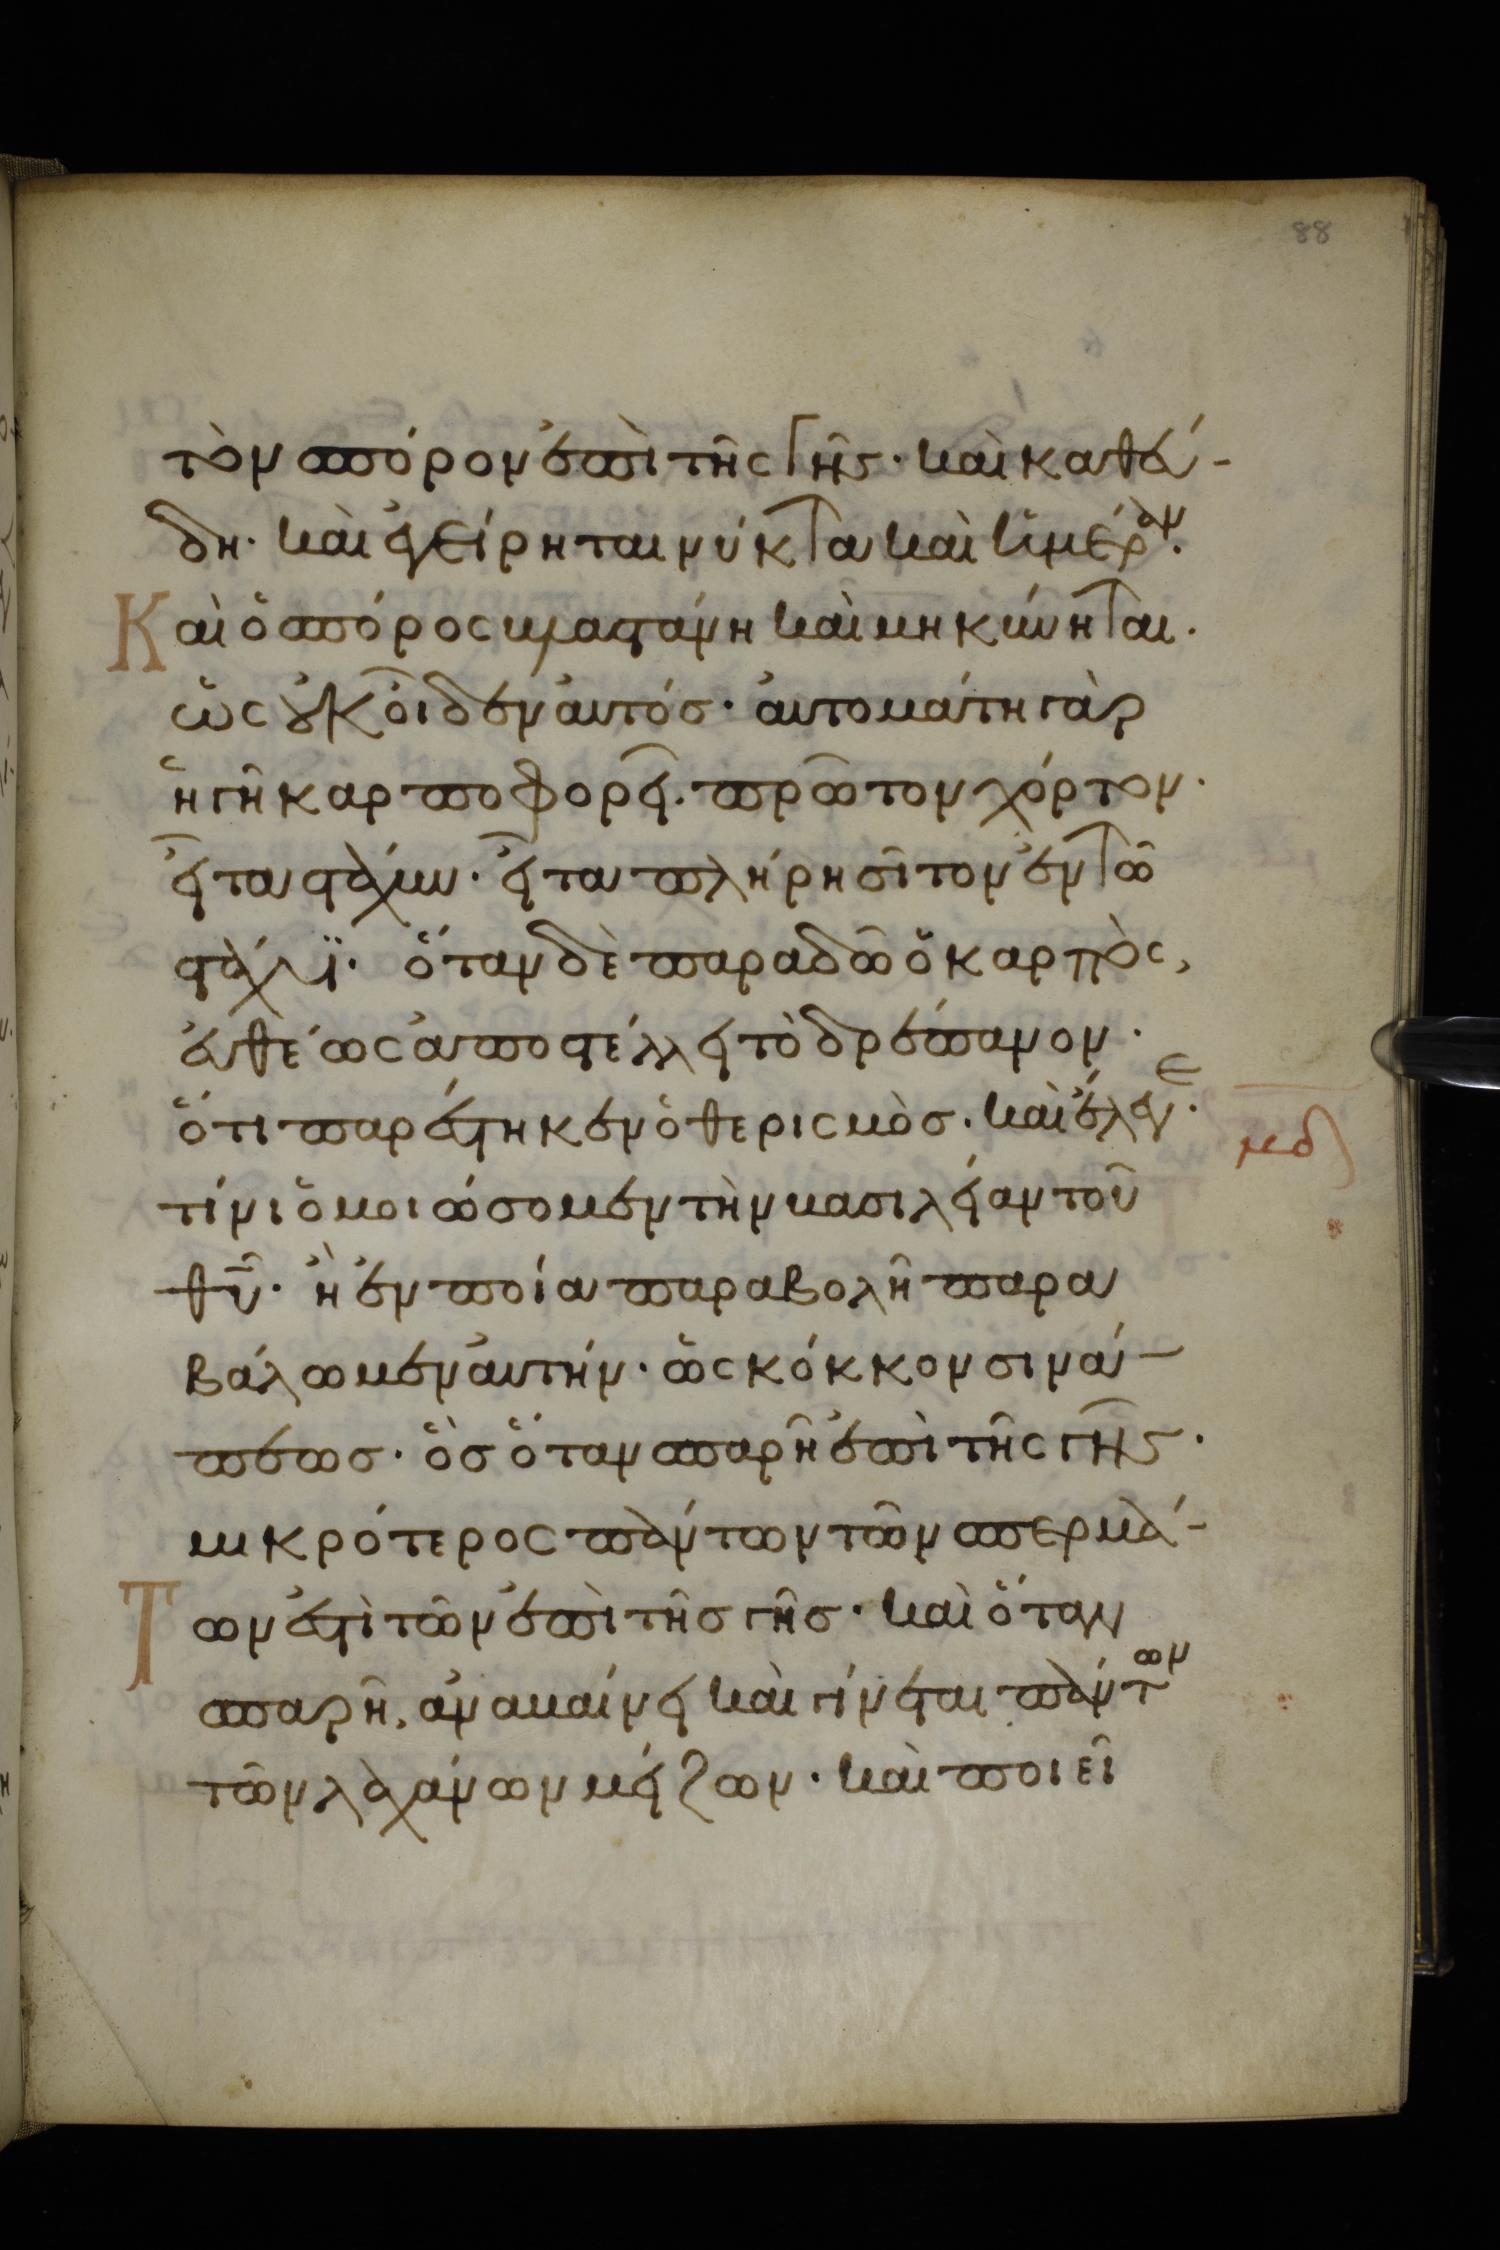 88
τὸν σπόρον ἐπὶ τῆς γῆς· καὶ καθεύ-
δη· καὶ ἐγείρηται νύκτα καὶ ἡμέραν.
Καὶ ὁ σπόρος βλαστάνη καὶ μηκύνηται·
ὡς οὐκ οἶδεν αὐτός· αὐτομάτη γὰρ
ἡ γῆ καρποφορεῖ· πρῶτον χόρτον·
εἶτα στάχυν· εἶτα πλήρη σῖτον ἐν τῶ
στάχυϊ· ὅταν δὲ παραδῶ ὁ καρπὸς,
εὐθέως ἀποστέλλει τὸ δρέπανον·
ὅτι παρέστηκεν ὁ θερισμὸς· καὶ ἔλεγε·
μδ
τίνι ὁμοιώσομεν τὴν βασιλείαν τοῦ
θῦ· ἢ ἐν ποία παραβολῆ παρα
βάλωμεν αὐτήν· ὡς κόκκον σινά-
πεως· ὃς ὅταν σπαρῆ ἐπὶ τῆς γῆς·
μικρότερος πάντων τῶν σπερμά-
Των ἐστὶ τῶν ἐπὶ τῆς γῆς· καὶ ὅταν
σπαρῆ, ἀναβαίνει καὶ γίνεται πάντων
τῶν λαχάνων μείζων· καὶ ποιεῖ